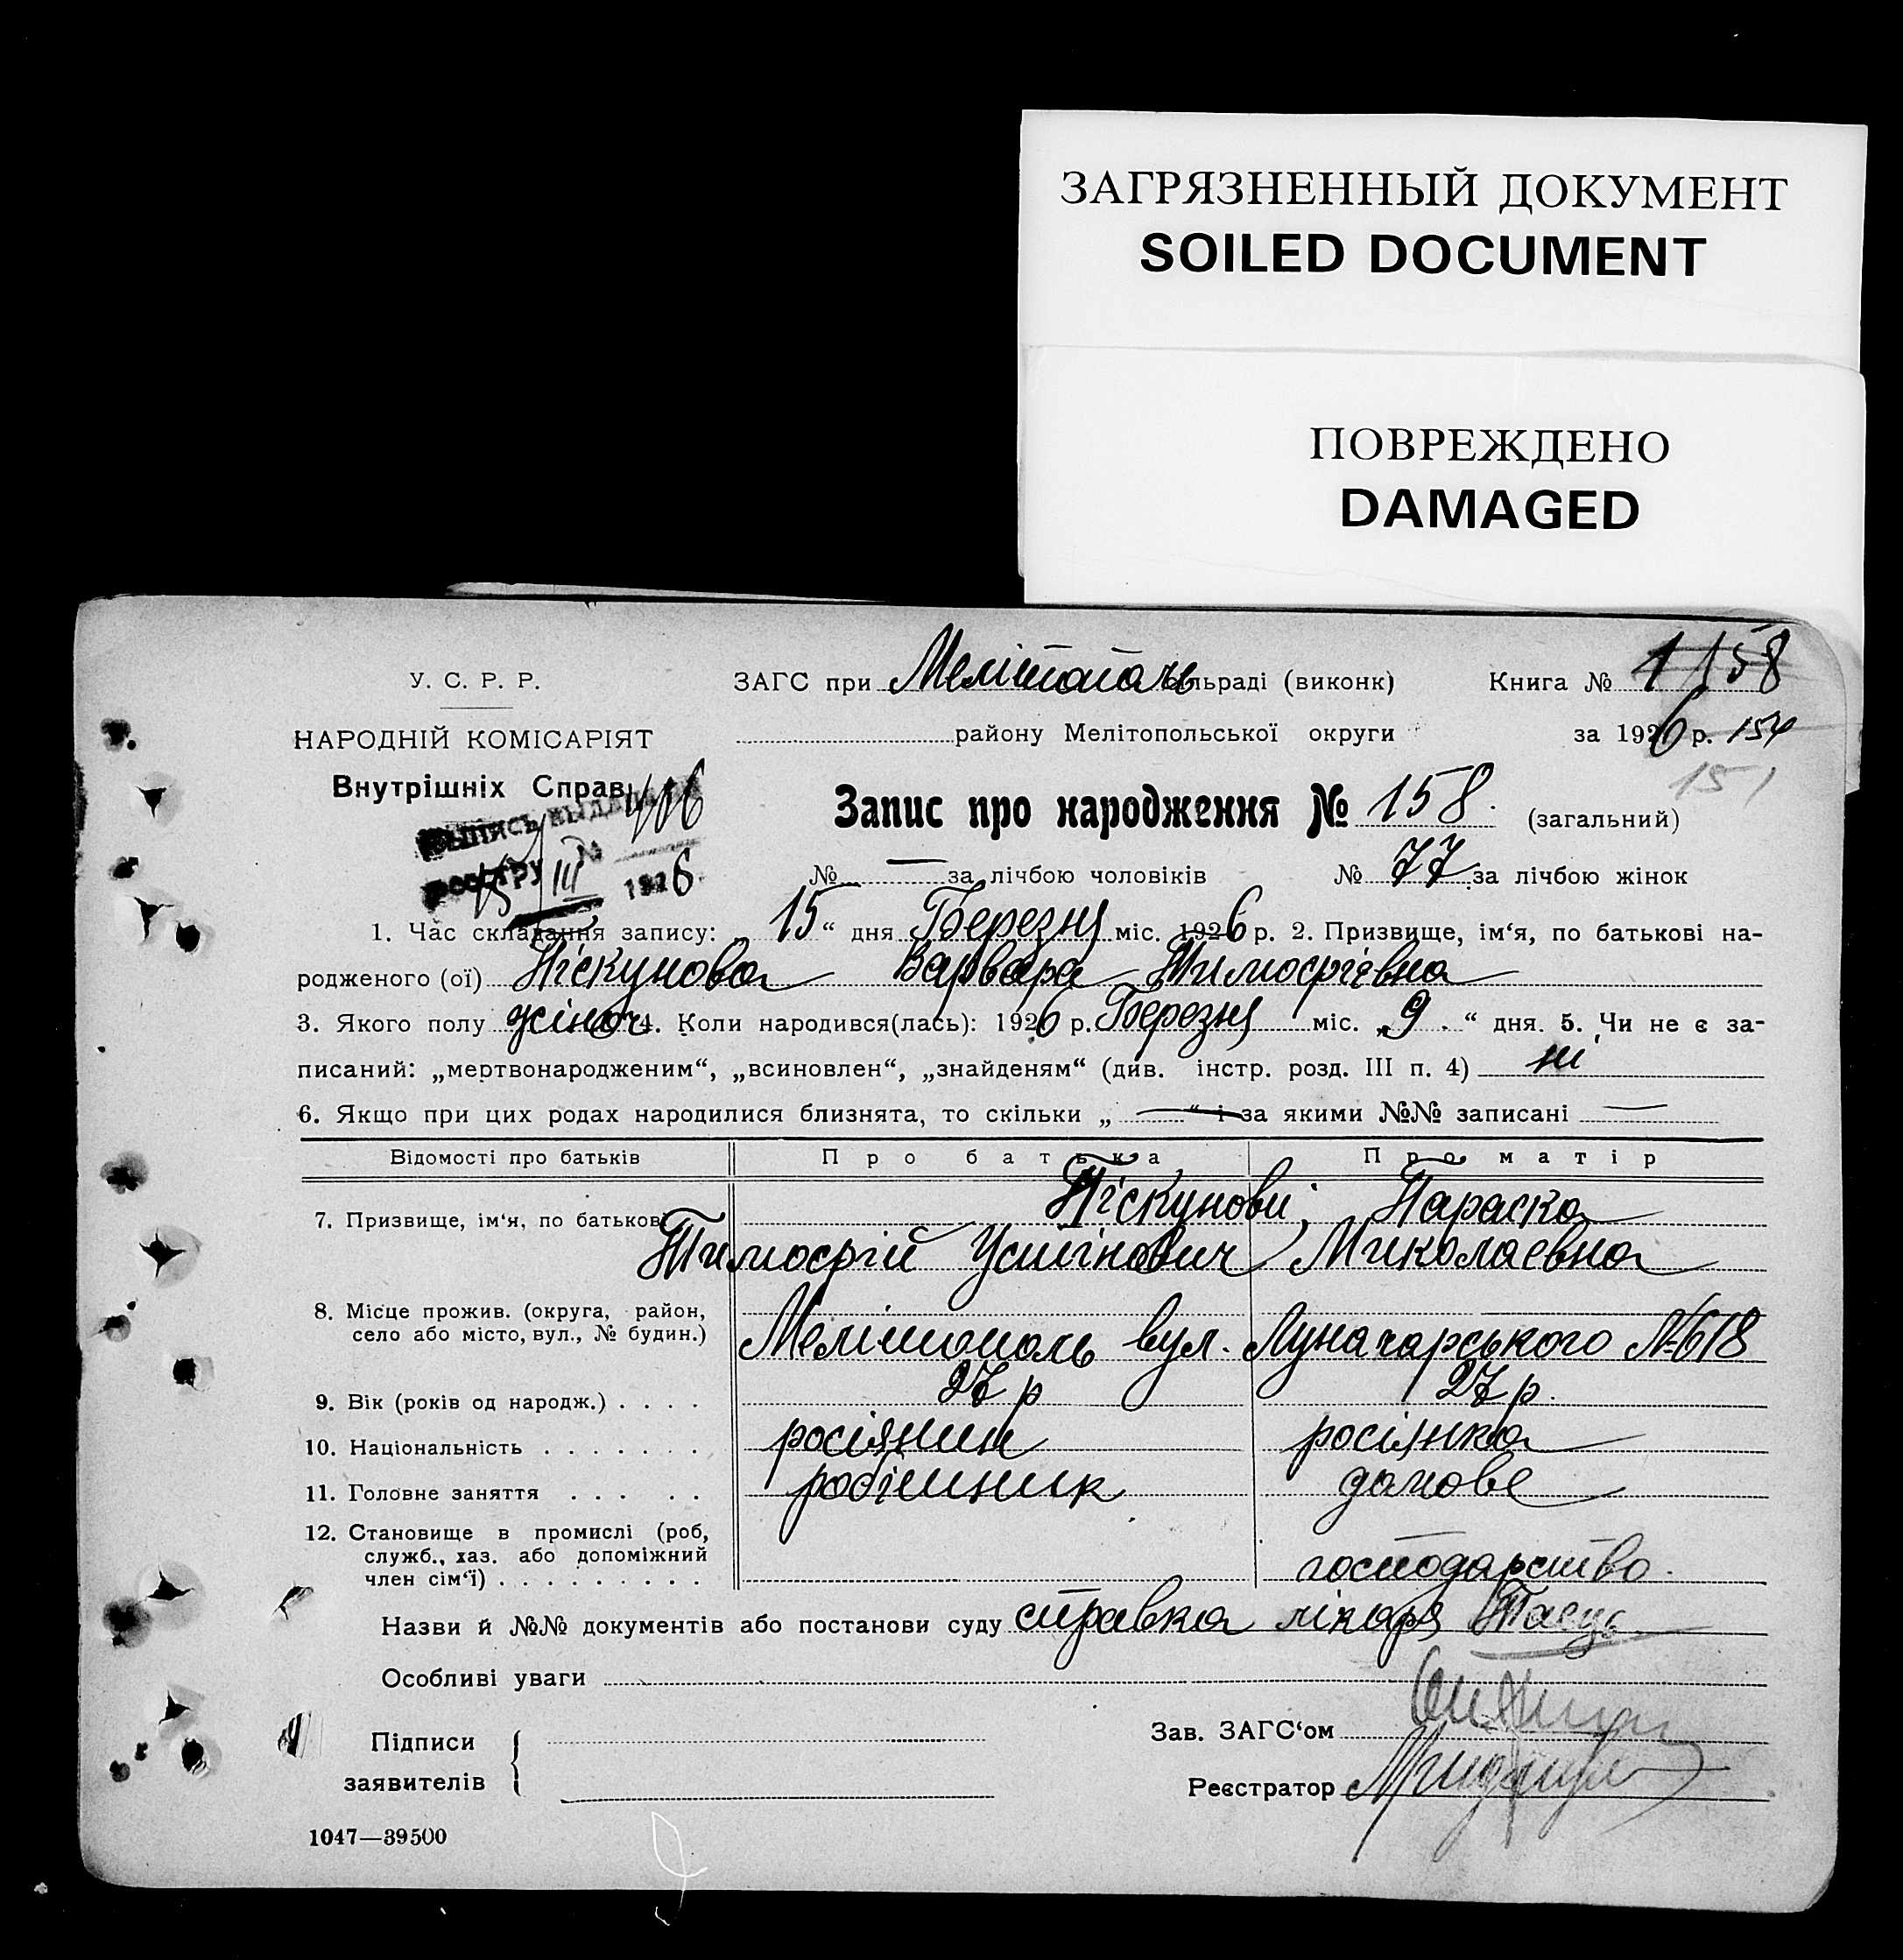 ЗАГРЯЗНЕННЫЙ ДОКУМЕНТ
SOILED DOCUMENT
ПОВРЕЖДЕНО
DAMAGED
У. С. Р. Р.
НАРОДНІЙ КОМІСАРІЯТ
Внутрішніх Справ
ЗАГС при Мелітопольраді (виконк) Книга № 1 158
району Мелітопольської округи за 1926 р. 154
151
406
III 1926
Запис про народження № 158. (загальний)
№ — за лічбою чоловіків № 77 за лічбою жінок
1. Час складання запису: 15“ дня Березня міс. 1926 р. 2. Призвище, ім‘я, по батькові на-
родженого (ої) Піскунова Варвара Тимофіївна
3. Якого полу жіноч 4. Коли народився(лась): 1926 р. Березня міс. „9“ дня. 5. Чи не є за-
писаний: „мертвонародженим“, „всиновлен“, „знайденям“ (див. інстр. розд. III п. 4) ні
6. Якщо при цих родах народилися близнята, то скільки „ — “ і за якими №№ записані —
Відомості про батьків Про батька Про матір
7. Призвище, ім‘я, по батькові Піскунови; Параска
Тимофій Устінович Миколаевна
8. Місце прожив. (округа, район,
село або місто, вул., № будин.) Мелітополь вул. Луначарського № 618
9. Вік (років од народж.) . . . . 27 р 27 р.
10. Національність . . . . . . . росіянин росіянка
11. Головне заняття . . . . . робітник домове
12. Становище в промислі (роб,
служб., хаз. або допоміжний
член сім‘ї) . . . . . . . . . господарство.
Назви й №№ документів або постанови суду справка лікаря
Особливі уваги
Підписи
заявителів
Зав. ЗАГС‘ом
Реєстратор
1047—39500